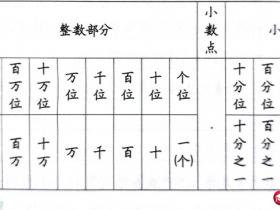 整数部分 小数点 小
百万位 十万位 万位 千位 百位 十位 个位 十分位 百分位
百万 十万 万 千 百 十 一(个) . 十分之一 百分之一